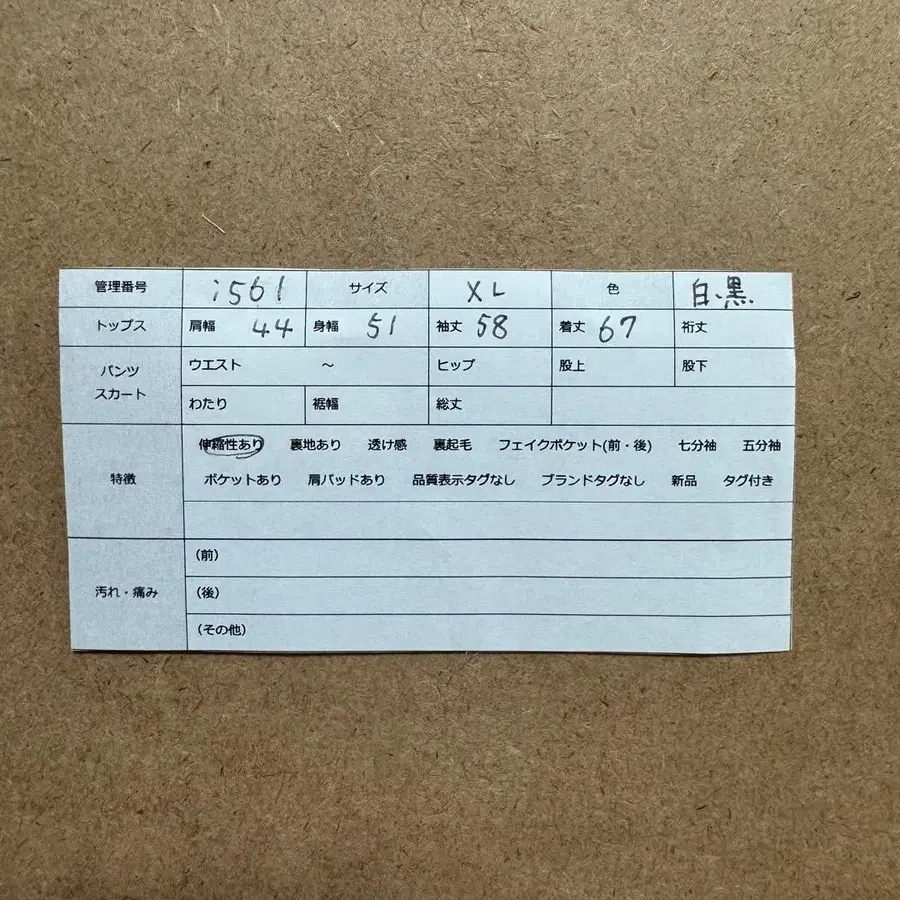 管理番号 i561 サイズ XL 色 白.黒.
トップス 肩幅 44 身幅 51 袖丈 58 着丈 67 裄丈
パンツ スカート ウエスト ～ ヒップ 股上 股下
わたり 裾幅 総丈
特徴 伸縮性あり 裏地あり 透け感 裏起毛 フェイクポケット(前・後) 七分袖 五分袖
ポケットあり 肩パッドあり 品質表示タグなし ブランドタグなし 新品 タグ付き
汚れ・痛み (前)
(後)
(その他)